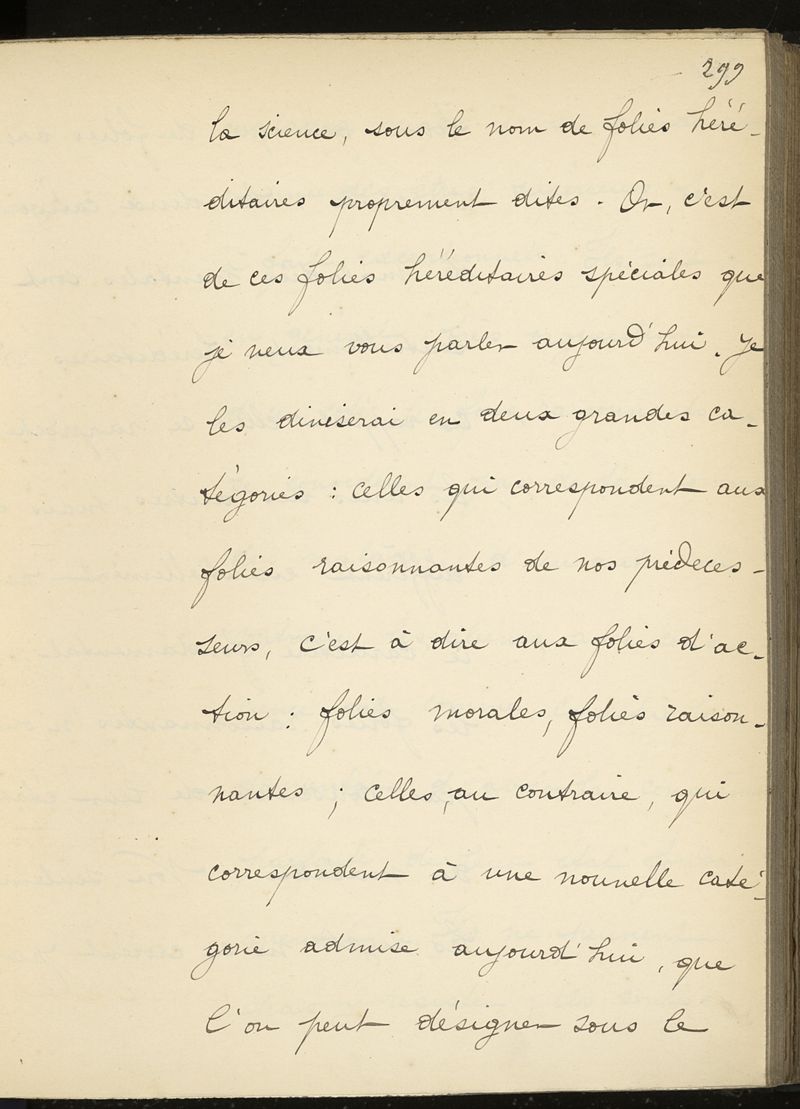 299
la science, sous le nom de folies héré-
ditaires proprement dites. Or, c'est
de ces folies héréditaires spéciales que
je veux vous parler aujourd'hui. Je
les diviserai en deux grandes ca-
tégories : celles qui correspondent aux
folies raisonnantes de nos prédeces-
seurs, c'est à dire aux folies d'ac-
tion : folies morales, folies raison-
nantes ; celles, au contraire, qui
correspondent à une nouvelle caté-
gorie admise aujourd'hui, que
l'on peut désigner sous le